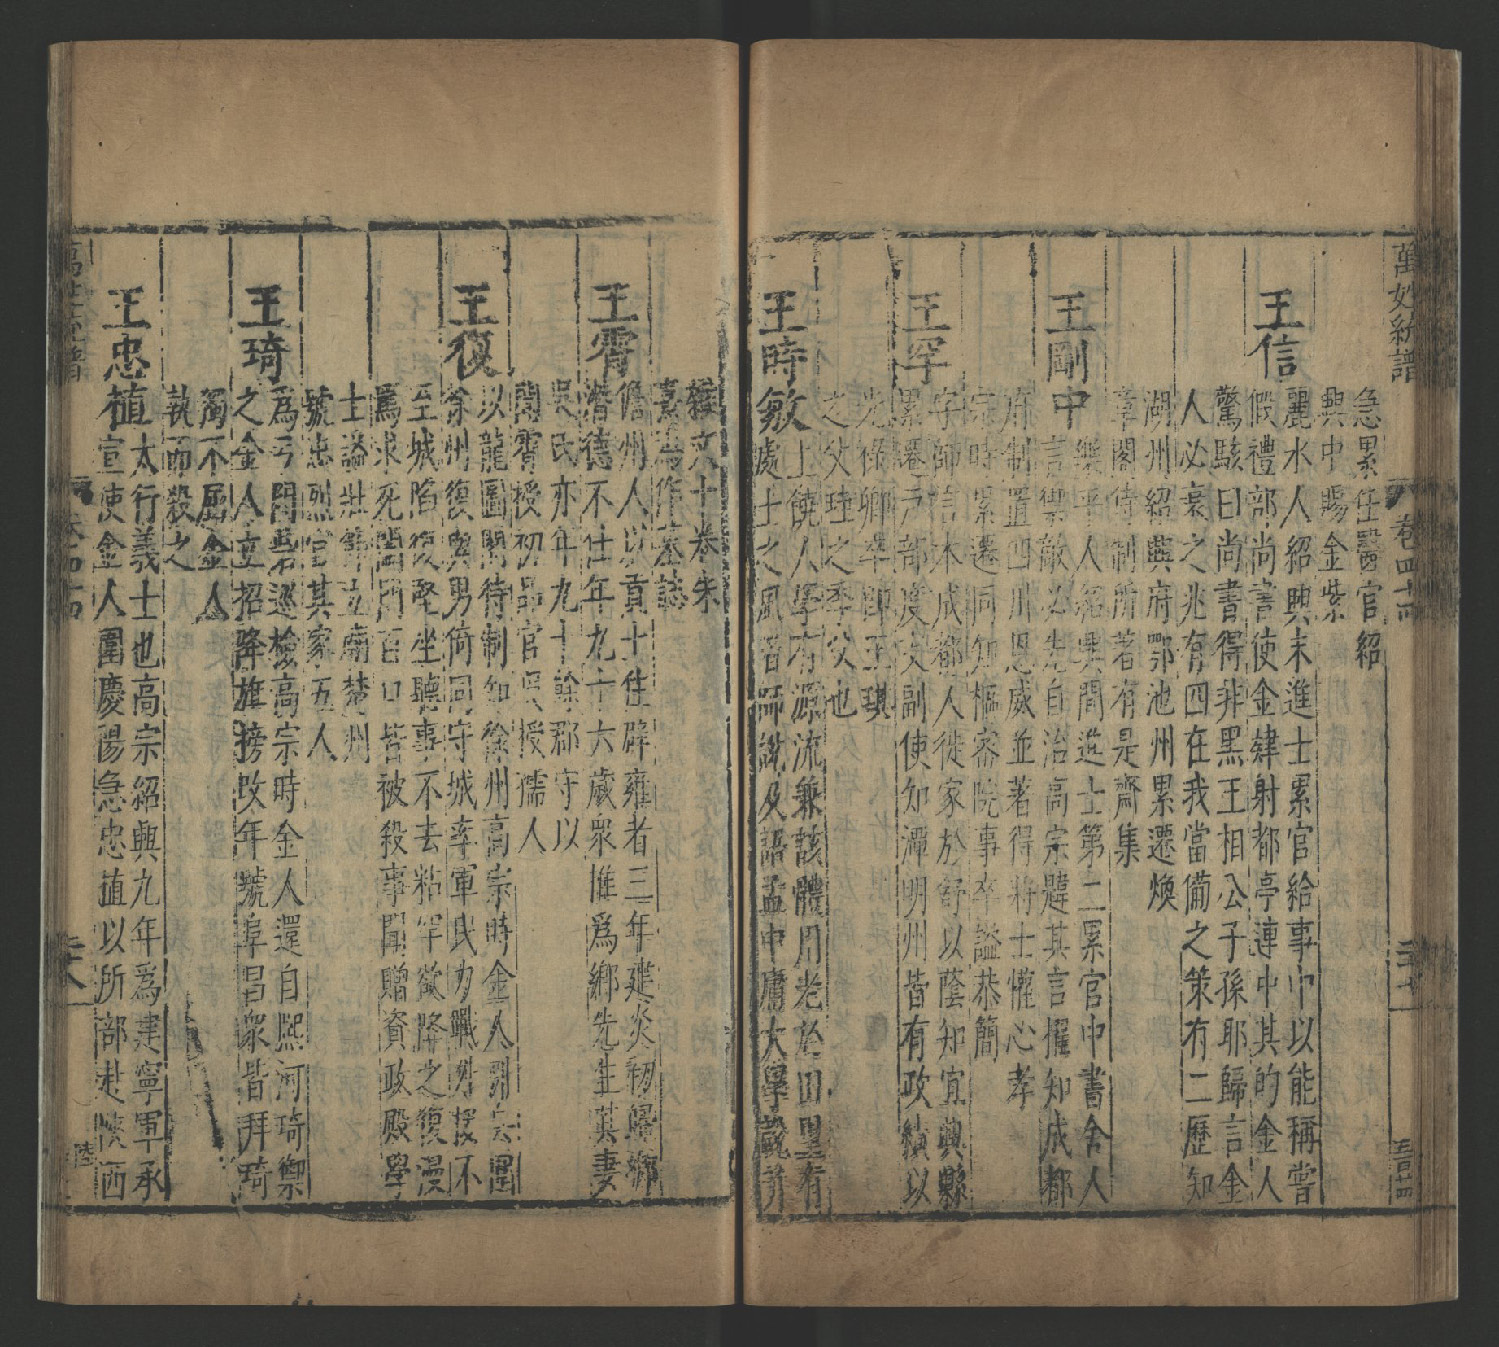 萬姓統譜 卷四十四
急累任醫官紹
興中賜金紫
王信
麗水人紹興末進士累官給事中以能稱嘗
假禮部尚書使金肄射都亭連中其的金人
驚駭曰尚書得非黑王相公子孫耶歸言金
人必衰之兆有四在我當備之策有二歷知
湖州紹興府鄂池州累遷煥
章閣侍制所著有是齋集
王剛中
樂平人紹興間進士第二累官中書舍人
言禦敵必先自治高宗韙其言擢知成都
府制置四川恩威並著得將士懽心孝
宗時累遷同知樞密院事卒謚恭簡
王罕
字師言本成都人徙家於舒以蔭知宜興縣
累遷户部度支副使知潭明州皆有政績以
光祿卿卒即王琪
之父珪之季父也
王時敏
上饒人學有源流兼該體用老於田里有
處士之風著師說及語孟中庸大學箴并
雜文十卷朱
熹爲作墓誌
王霄
儋州人以貢士住辟雍者三年建炎初歸鄉
潛德不仕年九十六歲衆推爲鄉先生其妻
吳氏亦年九十餘郡守以
聞霄授初品官吳授儒人
王復
以龍圖閣待制知徐州高宗時金人圍
徐州復與男倚同守城率軍民力戰外援不
至城陷復堅坐聽事不去粘罕欲降之復漫
罵求死闔門百口皆被殺事聞贈資政殿學
士謚壯節立廟楚州
號忠烈官其家五人
王琦
爲弓門砦巡檢高宗時金人還自熙河琦禦
之金人立招降旗榜改年號阜昌衆皆拜琦
獨不屈金人
執而殺之
王忠植
太行義士也高宗紹興九年爲建寧軍承
宣使金人圍慶陽急忠植以所部赴陝西